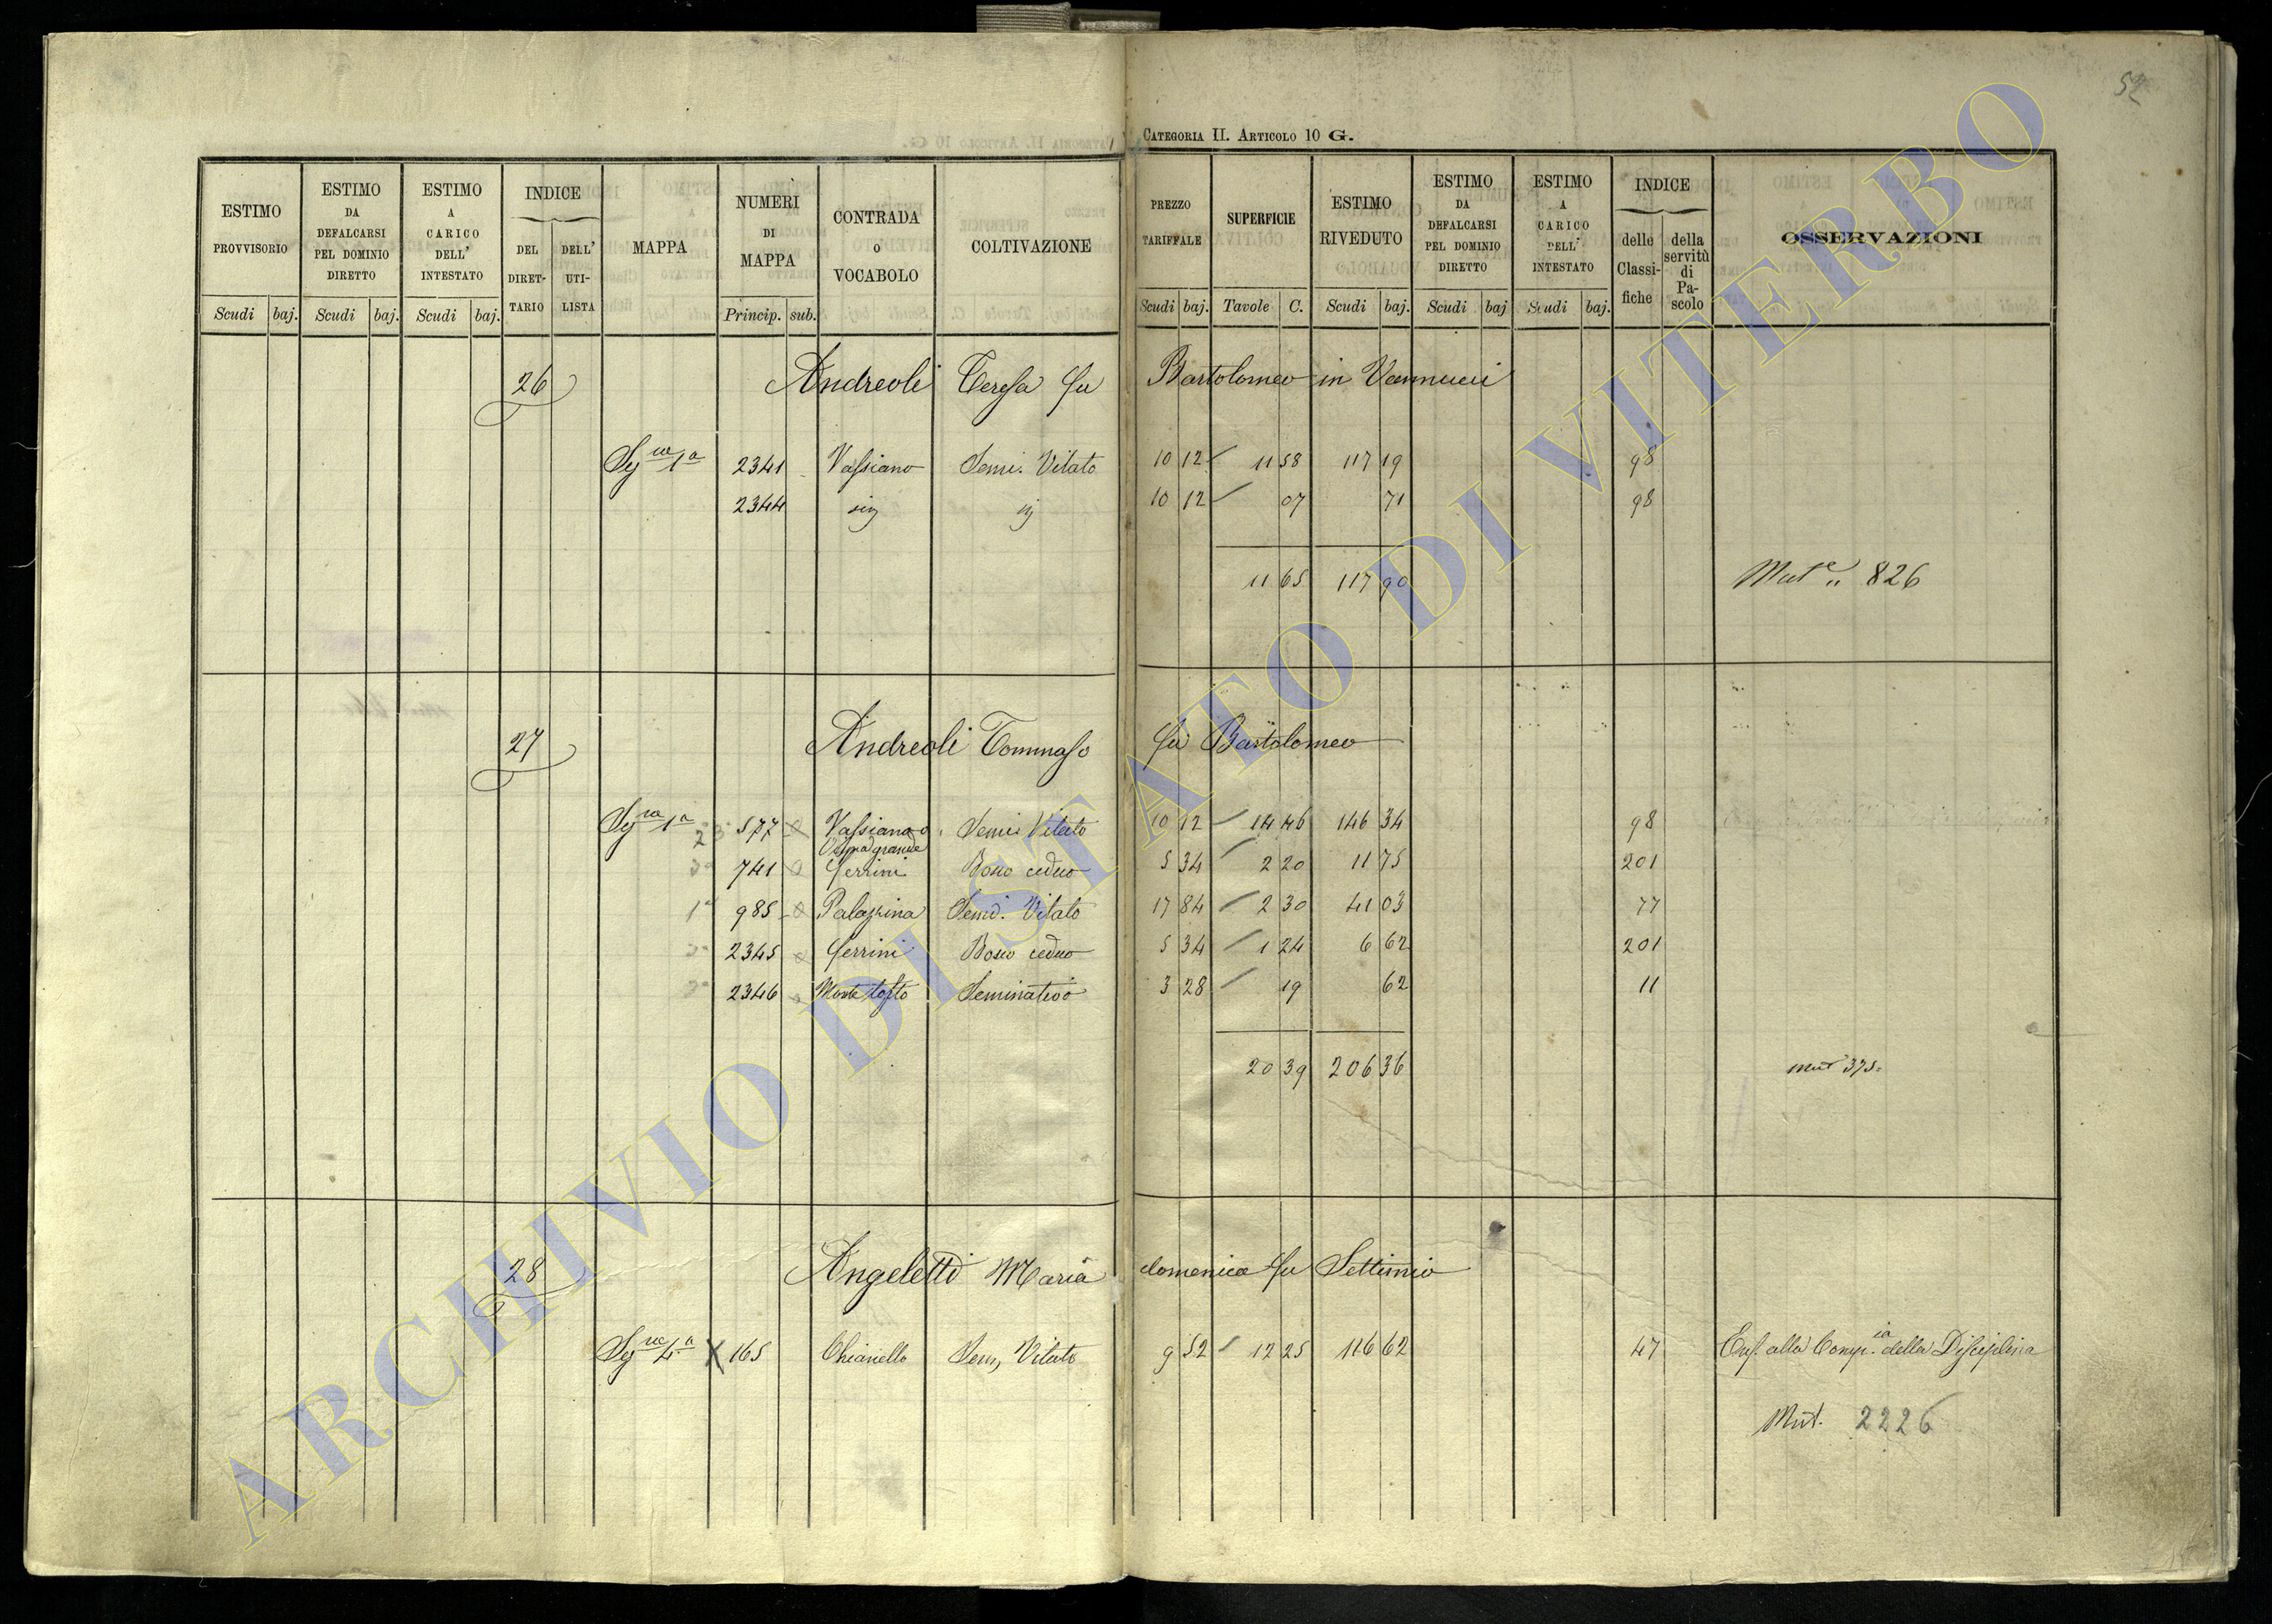 52
CATEGORIA II. ARTICOLO 10 G.
ESTIMO PROVVISORIO
ESTIMO DA DEFALCARSI PEL DOMINIO DIRETTO
ESTIMO A CARICO DELL' INTESTATO
INDICE
DEL DIRET-TARIO
DELL' UTI-LISTA
MAPPA
NUMERI DI MAPPA
CONTRADA O VOCABOLO
COLTIVAZIONE
PREZZO TARIFFALE
SUPERFICIE
ESTIMO RIVEDUTO
ESTIMO DA DEFALCARSI PEL DOMINIO DIRETTO
ESTIMO A CARICO DELL' INTESTATO
INDICE
delle Classi-fiche
della servitù di Pa-scolo
OSSERVAZIONI
Scudi baj. Scudi baj. Scudi baj. Princip. sub. Scudi baj. Tavole C. Scudi baj. Scudi baj Scudi baj.
26 Andreoli Teresa fu Bartolomeo in Vannucci
Sez.ne 1a 2341 Vassiano Semi. Vitato 10 12 11 58 117 19 98
2344 10 12 07 71 98
11 65 117 90 Mut.e 826
27 Andreoli Tommaso fu Bartolomeo
1a 577 Vassiano Semi. Vitato 10 12 14 46 146 34 98
grande
741 Ferrini Bosco ceduo 5 34 2 20 11 75 201
985 Palazzina Semi. Vitato 17 84 2 30 41 03 77
2345 Ferrini Bosco ceduo 5 34 1 24 6 62 201
2346 Monte tosto Seminativo 3 28 19 62 11
20 39 206 36 mut 375
28 Angeletti Maria domenica fu Settimio
4a X 165 Chianello Sem. Vitato 9 52 12 25 116 62 47 Enf. alla Comp.ia della Disciplina
Mut. 2226
ARCHIVIO DI STATO DI VITERBO